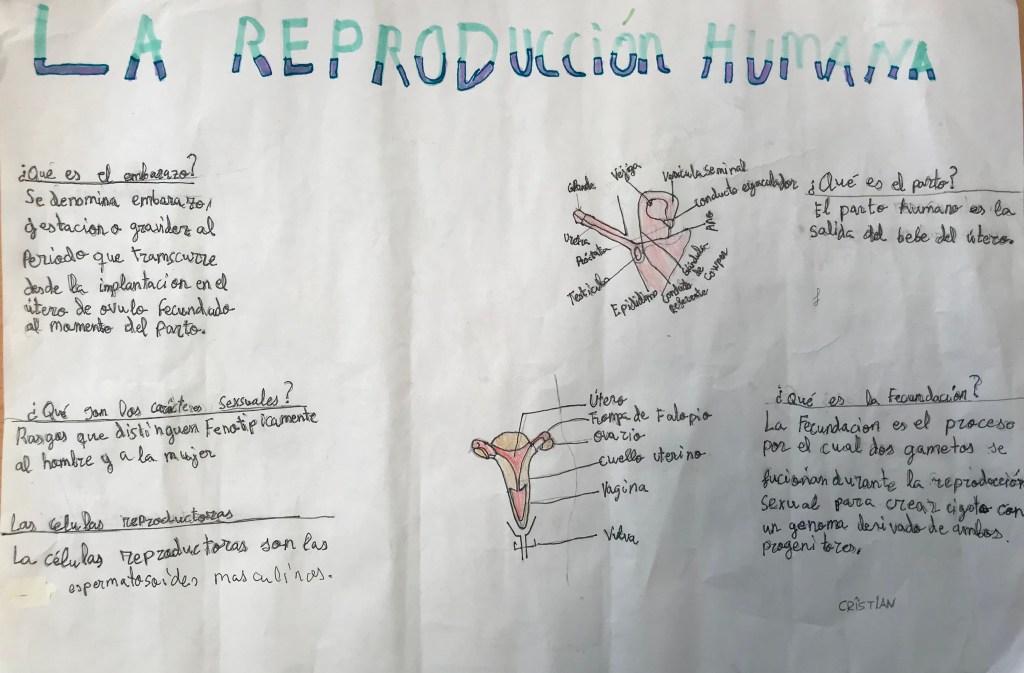 LA REPRODUCCIÓN HUMANA
¿Qué es el embarazo?
Se denomina embarazo,
gestacion o gravidez al
Periodo que transcurre
desde la implantacion en el
útero de ovulo fecundado
al momento del Parto.
¿Qué son los carácteres sexsuales?
Rasgos que distinguen Fenotipicamente
al hombre y a la mujer
Las celulas reproductoras
La células reproductoras son las
espermatosoides masculinos.
Glande
Vejiga
Vesicula seminal
Conducto eyaculador
Ano
Uretra
Próstata
Testiculo
Epididimo
Conducto
deferente
Glándula
de
cowper
Útero
Trompa de Falopio
ovario
cuello uterino
Vagina
Vulva
¿Qué es el parto?
El parto humano es la
salida del bebe del útero.
¿Qué es la Fecundación?
La Fecundacion es el proceso
por el cual dos gametos se
fucionan durante la reproducción
Sexual para crear cigoto con
un genoma derivado de ambos
progenitores.
CRISTIAN